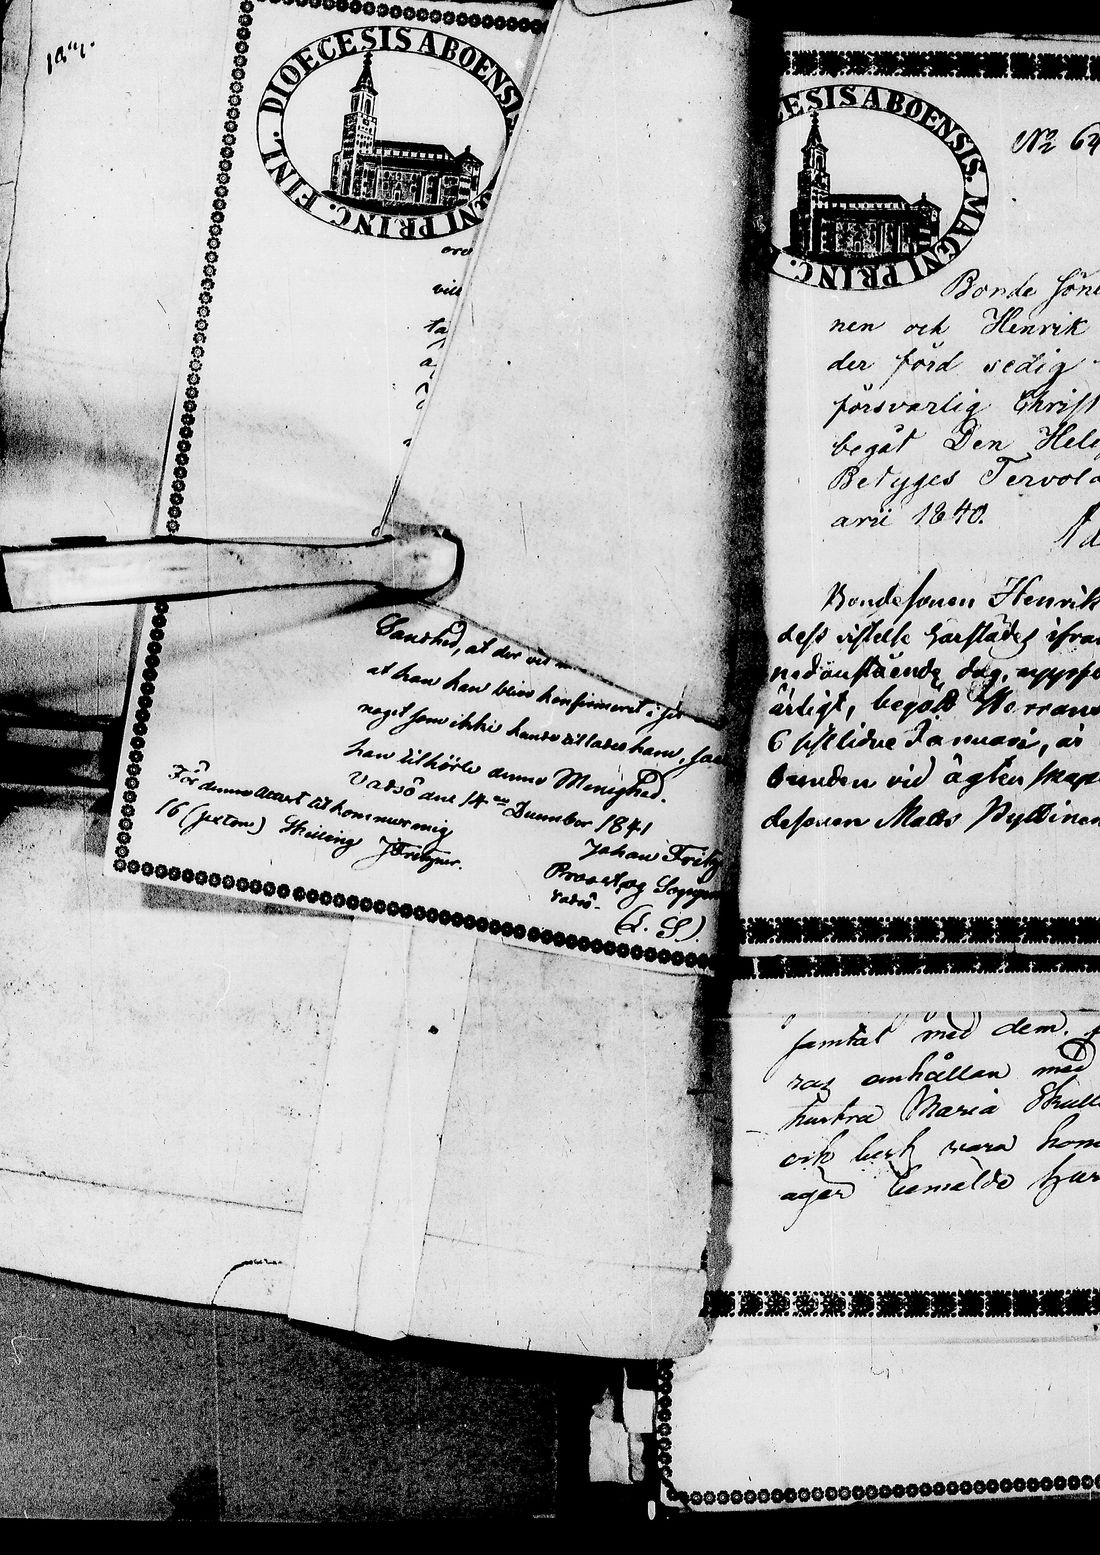 DIOECESIS ABOENSI
NI PRINC. FINL.
ore
vill
ta
Sandhed, at der ved
at han kan blive konfirmeret i
noget som ikke kunde tillades ham,
han tilhörte denne Menighed.
Vadsö den 14 December 1841
Johan Fritz
Provst og Sogne
Vadsö.
(L. S.).
För denne Attest tilkommer mig
16 (sexten) Skilling JFritzner.
ESIS ABOENSIS. MAGNI PRINC.
No 64
Bonde Söne
nen och Henrik
der förd sedig
försvarlig Christ
begåt Den Helig
Betyges Tervola
arii 1840.
Ad
Bondesonen Henrik
dess vistelse härstädes ifrån
nedanstående dag, uppfö
ärligt, begått H
6 sistlidne Januari, är
bunden vid ägtenskap
desonen Matts Pyttinen
samtal med dem,
anhållan med
hustru Maria
och vara hon
ager bemälde